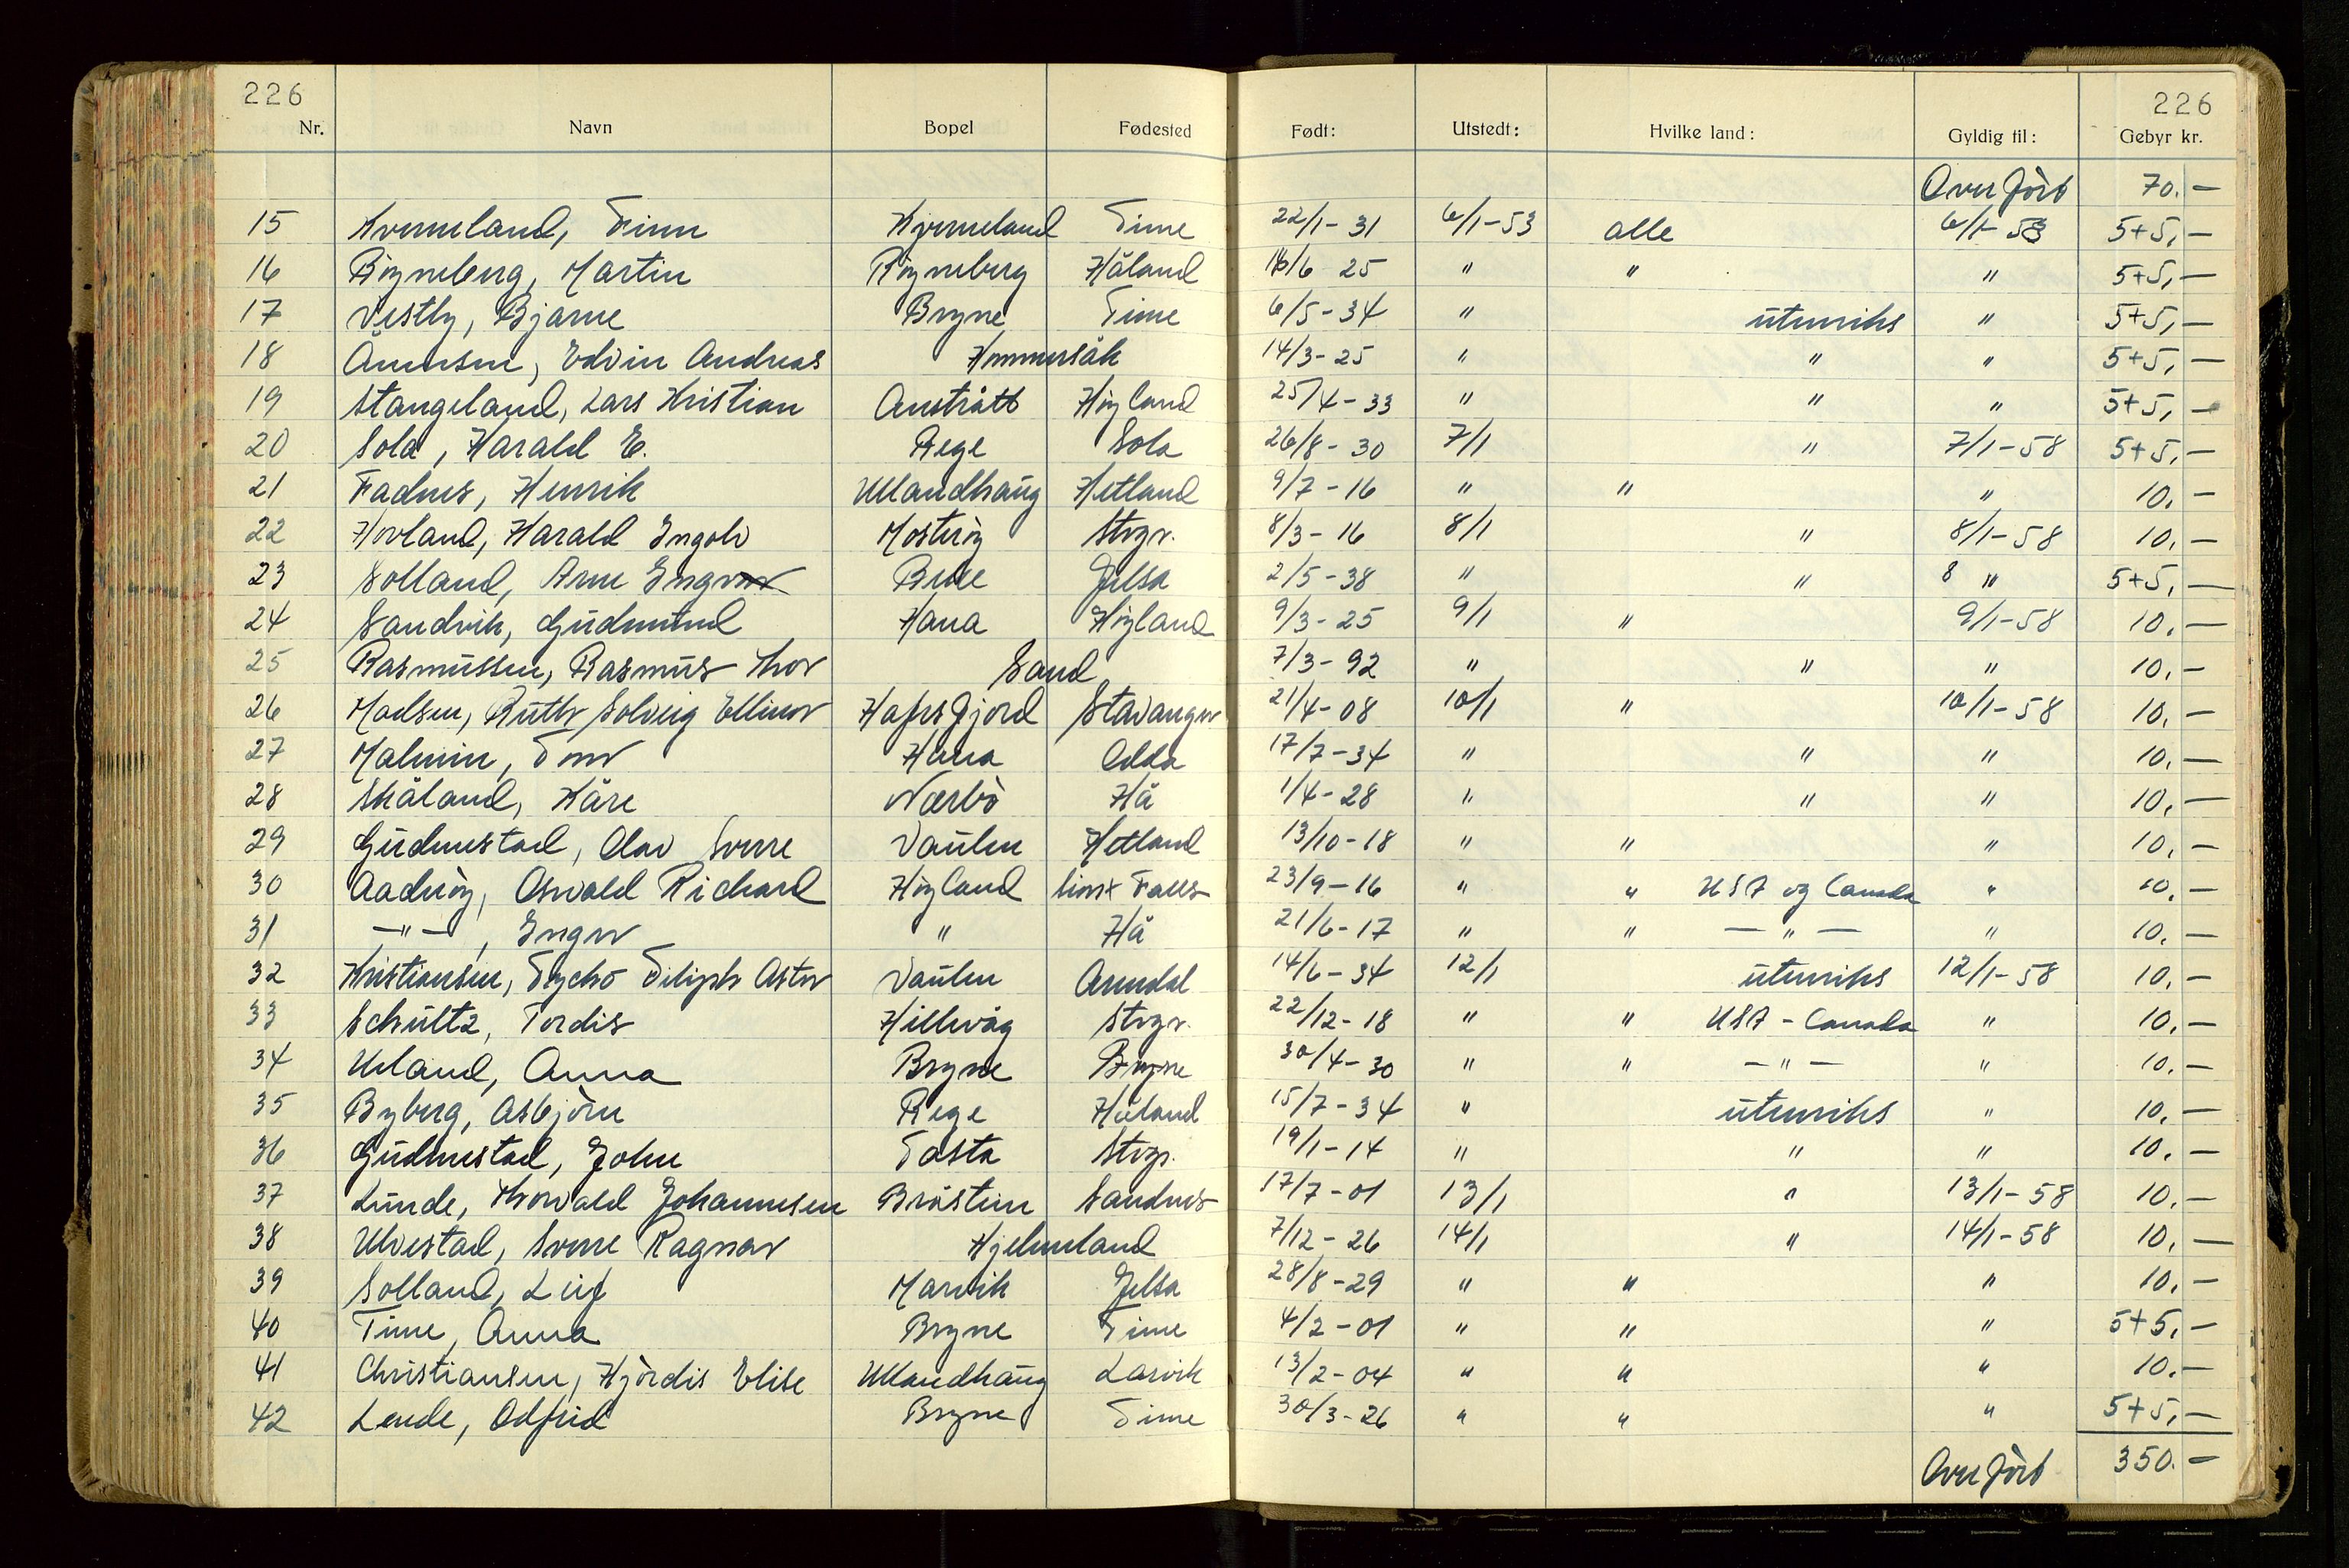 226 226
Nr. Navn Bopel Fødested Født: Utstedt: Hvilke land: Gyldig til: Gebyr kr.
Overført 70.—
15 Kverneland, Finn Kverneland Time 22/1-31 6/1-53 alle 6/1-58 5+5,—
16 Røyneberg, Martin Røyneberg Håland 16/6 25 " " " 5+5,—
17 Vestly, Bjarne Bryne Time 6/5-34 " utenriks " 5+5,—
18 Edvin Andreas Hommersåk 14/3-25 " " " 5+5,—
19 Stangeland, Lars Kristian Austrått Høyland 25/4-33 " " " 5+5,—
20 Sola, Harald E. Rege Sola 26/8-30 7/1 " 7/1-58 5+5,—
21 Fadnes, Henrik Ullandhaug Hetland 9/7-16 " " " 10,—
22 Hovland, Harald Ingolv Mosterøy Stvgr. 8/3-16 8/1 " 8/1-58 10,—
23 Solland, Arne Ingvar Jelsa 2/5-38 " " 8 " 5+5,—
24 Sandvik, Gudmund Hana Høyland 9/3-25 9/1 " 9/1-58 10,—
25 Rasmussen, Rasmus Thor Sand 7/3-92 " " " 10,—
26 Madsen, Ruth Solveig Ellinor Hafrsfjord Stavanger 21/4-08 10/1 " 10/1-58 10,—
27 Malmin, Tor Hana Odda 17/7-34 " " " 10,—
28 Skåland, Kåre Nærbø Hå 1/4-28 " " " 10,—
29 Gudmestad, Olav Sverre Vaulen Hetland 13/10-18 " " " 10,—
30 Aadnøy, Osvald Richard Høyland Falls 23/9-16 " " USA og Canada " 10,—
31 —"—, Inger " Hå 21/6-17 " " —"— " 10,—
32 Kristiansen, Tycho Filiph Aster Vaulen Arendal 14/6-34 12/1 utenriks 12/1-58 10,—
33 Schultz, Tordis Hillevåg Stvgr. 22/12-18 " " USA - Canada " 10,—
34 Ueland, Anna Bryne Bryne 30/4-30 " " —"— " 10,—
35 Byberg, Asbjørn Rege Håland 15/7-34 " utenriks " 10,—
36 Gudmestad, John Tasta Stvgr. 19/1-14 " " " 10,—
37 Lunde, Thorvald Johannesen Bråstein Sandnes 17/7-01 13/1 " 13/1-58 10,—
38 Ulvestad, Sverre Ragnar Hjelmeland 7/12-26 14/1 " 14/1-58 10,—
39 Solland, Leif Marvik Jelsa 28/8-29 " " " 10,—
40 Time, Anna Bryne Time 4/2-01 " " " 5+5,—
41 Christiansen, Hjørdis Elise Ullandhaug Larvik 13/2-04 " " " 10.—
42 Lende, Odfrid Bryne Time 30/3-26 " " " 5+5,—
Overført 350.—